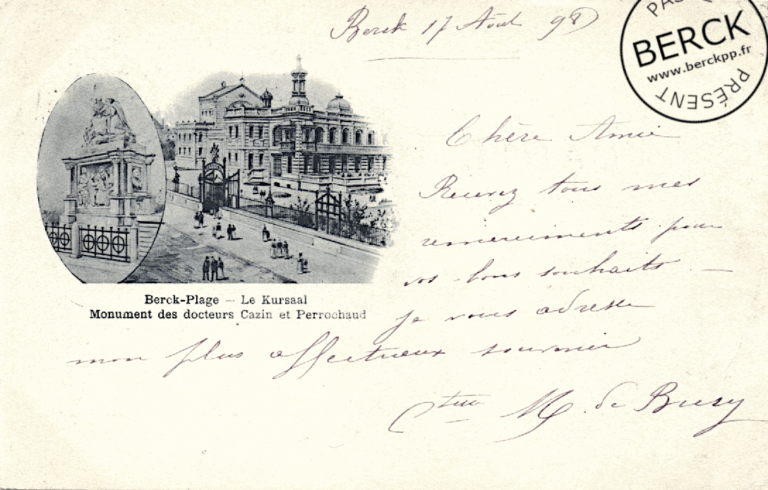 Berck 17 Aout 98
PAS
BERCK
www.berckpp.fr
PRÉSENT
Chère Amie
Recevez tous mes
remerciments pour
vos bons souhaits. —
je vous adresse
mon plus affectueux souvenir
Ctesse M. de
Berck-Plage — Le Kursaal
Monument des docteurs Cazin et Perrochaud